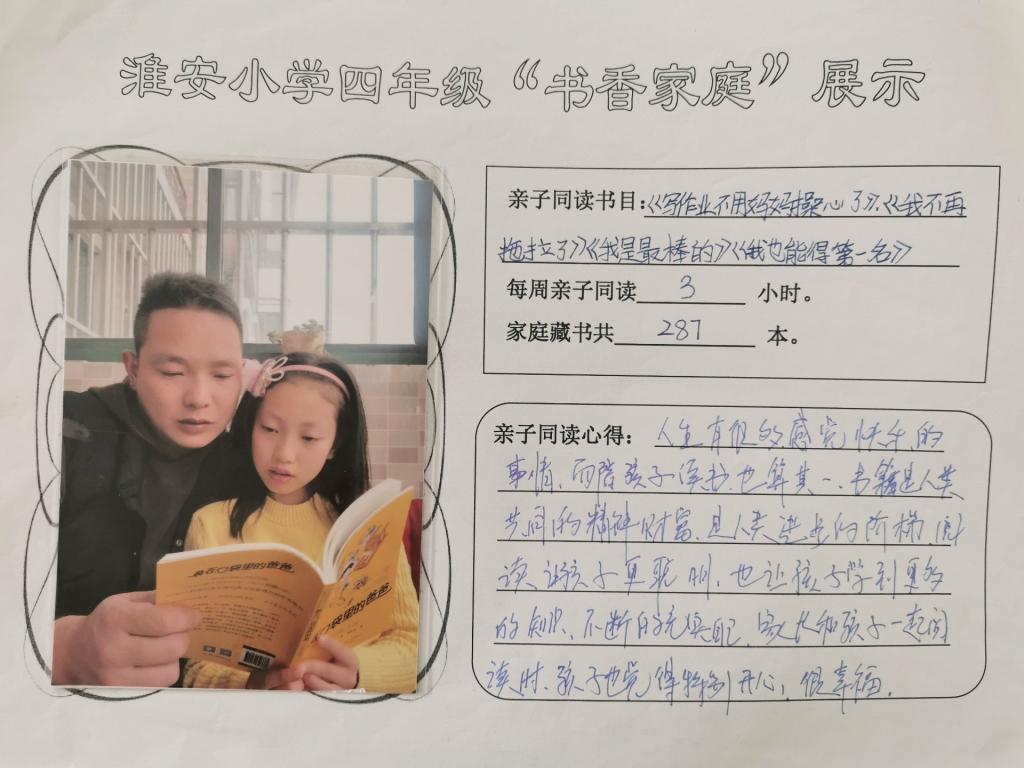 淮安小学四年级“书香家庭”展示
亲子同读书目:《写作业不用妈妈操心了》.《我不再
拖拉了》《我是最棒的》《我也能得第一名》
每周亲子同读 3 小时。
家庭藏书共 287 本。
亲子同读心得: 人生有很多感觉快乐的
事情,而陪孩子读书也算其一.书籍是人类
共同的精神财富,是人类进步的阶梯阅
读,让孩子更聪明,也让孩子学到更多
的知识,不断的充填自己,家长和孩子一起阅
读时,孩子也觉得特别开心,很幸福.
装在口袋里的爸爸
口袋里的爸爸